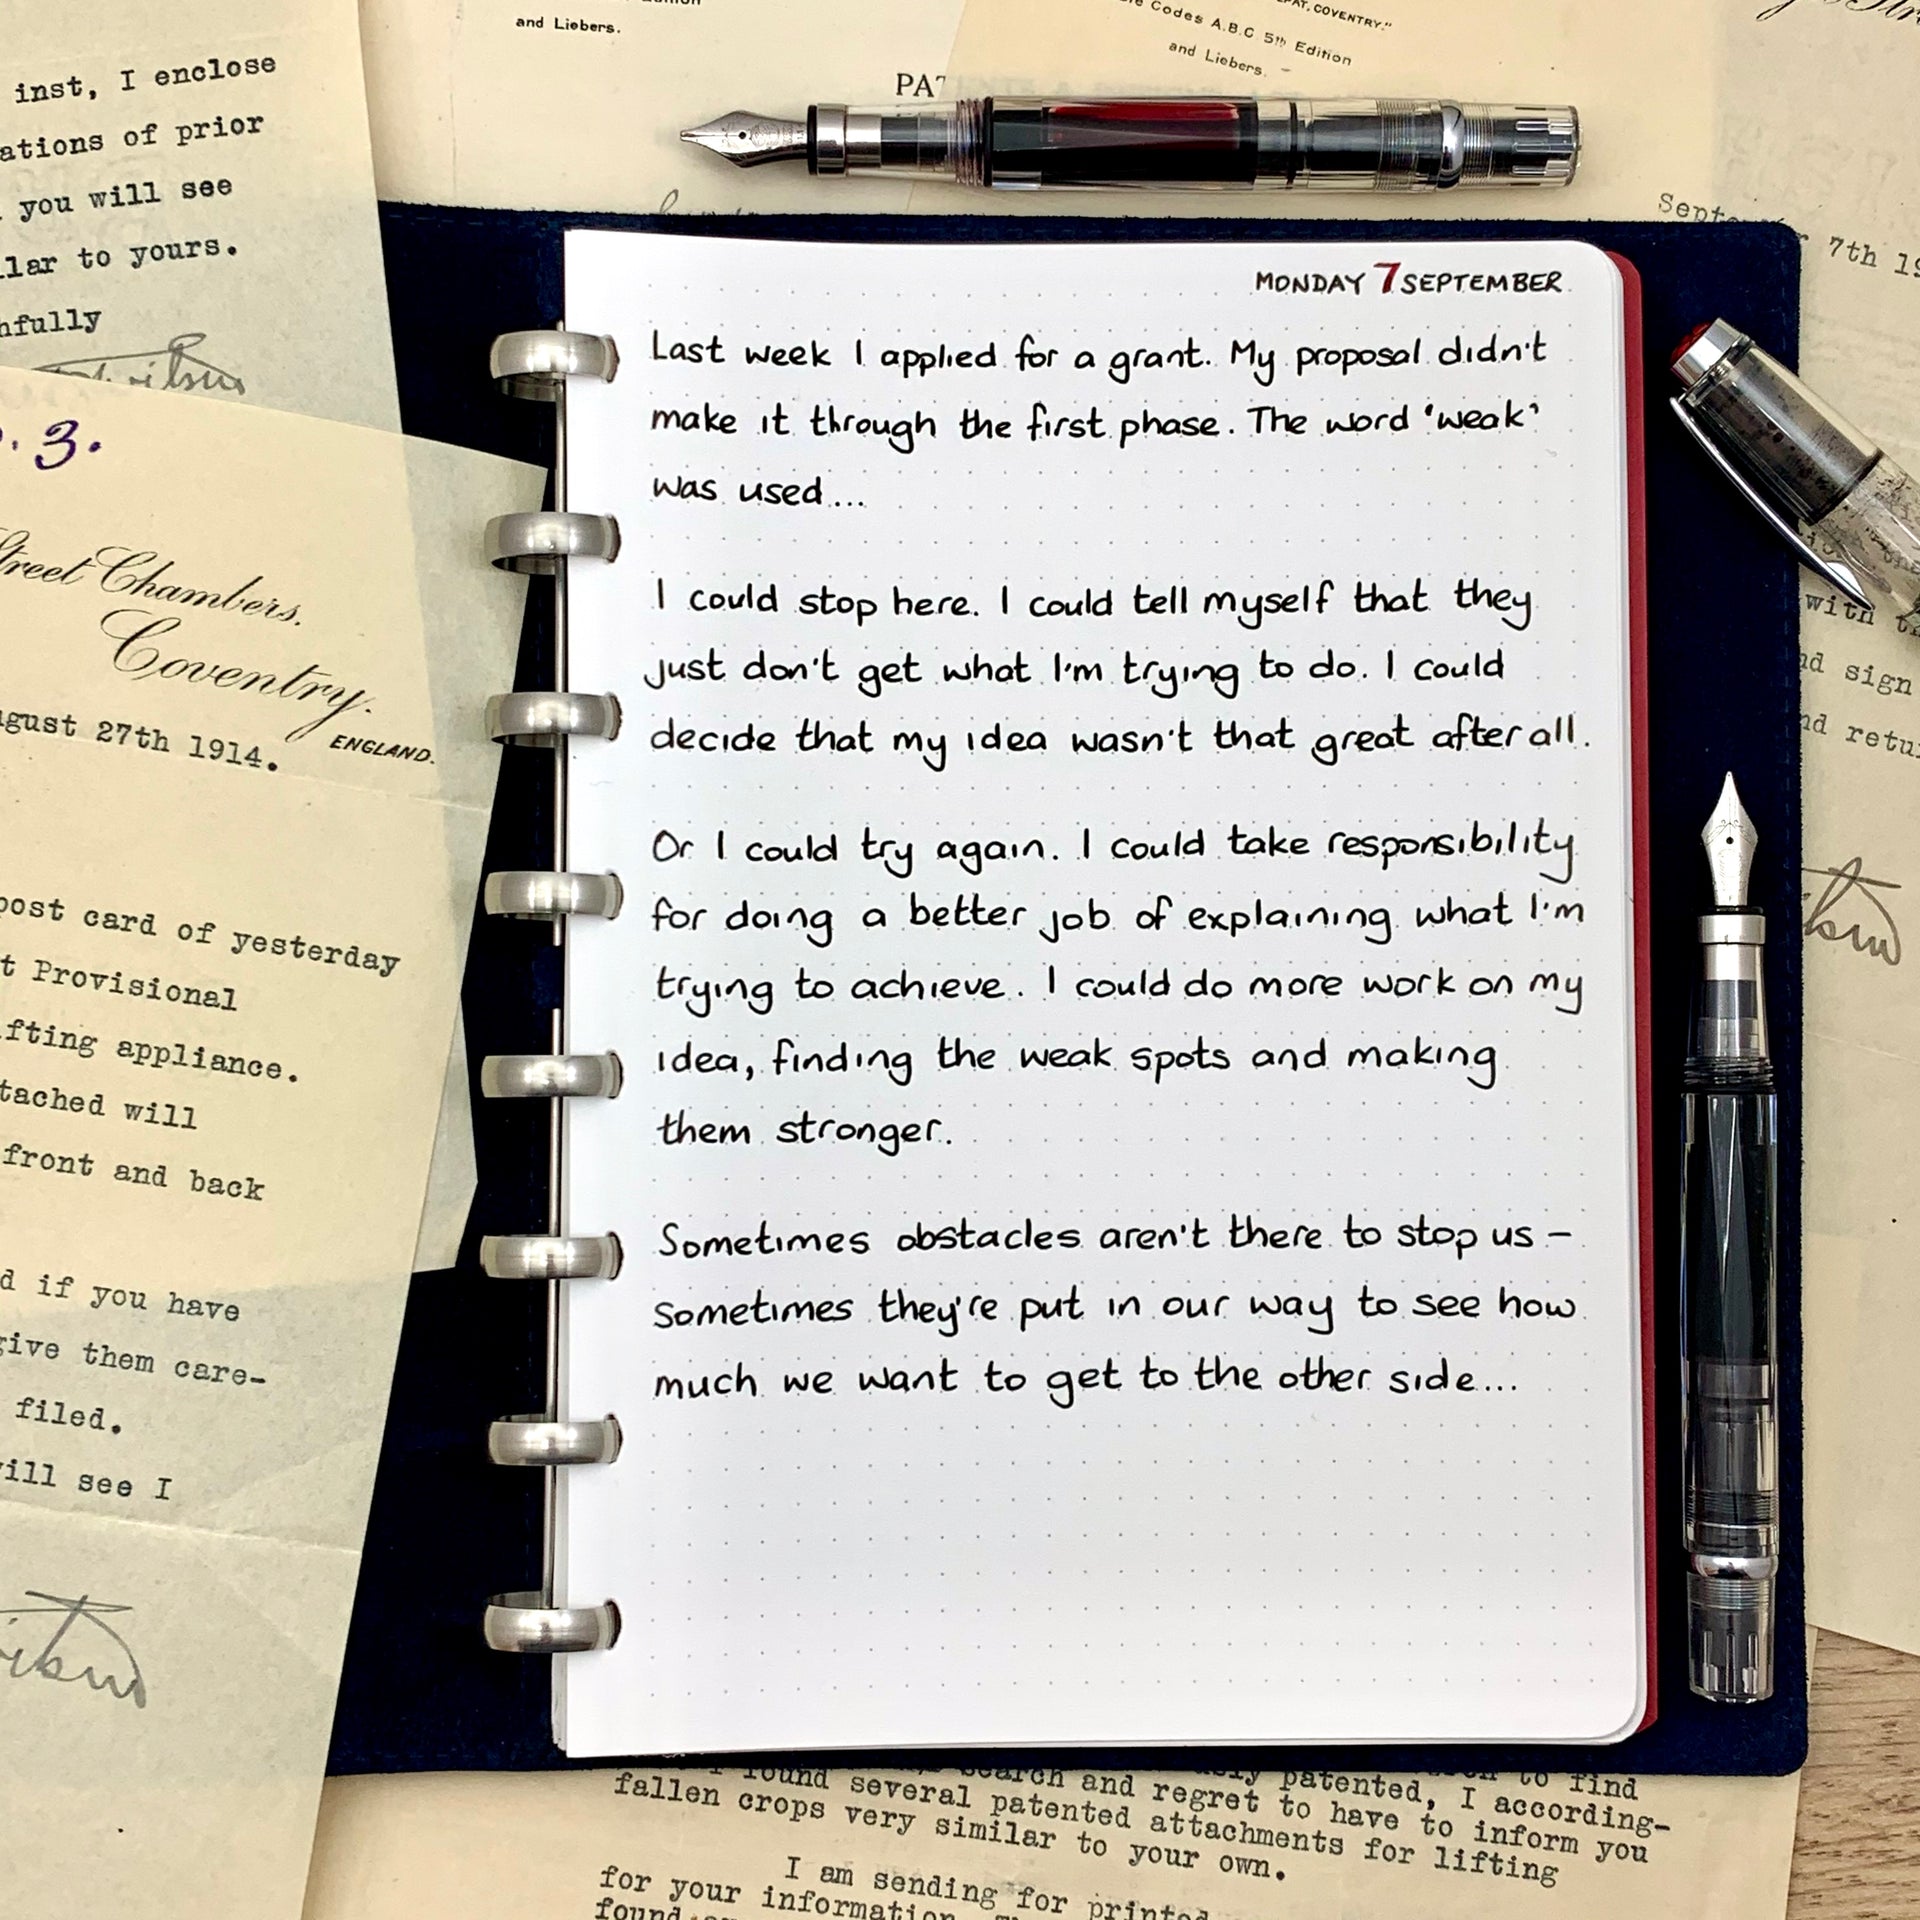 and Liebers.
PAT, COVENTRY."
Codes A.B.C 5th Edition
and Liebers.
inst, I enclose
ations of prior
you will see
lar to yours.
hfully
3.
Street Chambers.
Coventry.
ENGLAND.
ugust 27th 1914.
post card of yesterday
t Provisional
fting appliance.
tached will
front and back
d if you have
give them care-
filed.
will see I
MONDAY 7 SEPTEMBER
Last week I applied for a grant. My proposal didn't
make it through the first phase. The word 'weak'
was used...
I could stop here. I could tell myself that they
just don't get what I'm trying to do. I could
decide that my idea wasn't that great after all.
Or I could try again. I could take responsibility
for doing a better job of explaining what I'm
trying to achieve. I could do more work on my
idea, finding the weak spots and making
them stronger.
Sometimes obstacles aren't there to stop us –
sometimes they're put in our way to see how
much we want to get to the other side...
7th 19
with t
nd sign
nd retu
search and regret to have to inform you
found several patented attachments for lifting
fallen crops very similar to your own.
I am sending for printed
for your information.